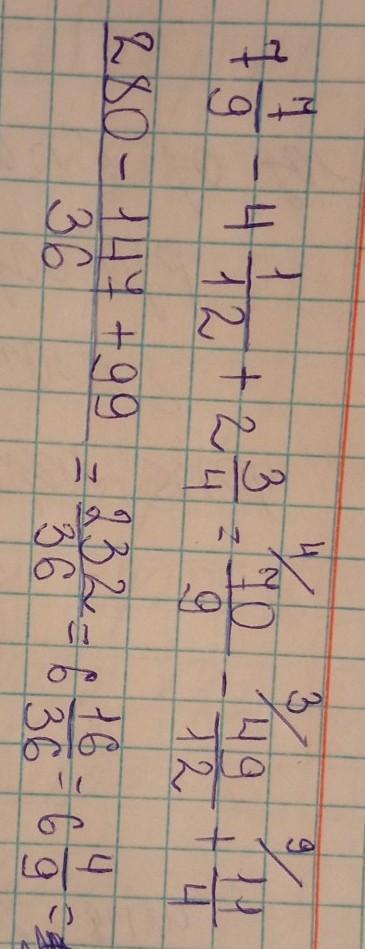 7 7/9 - 4 1/12 + 2 3/4 = 70/9 (4/ - 49/12 (3/ + 11/4 (9/
(280 - 147 + 99)/36 = 232/36 = 6 16/36 = 6 4/9 =